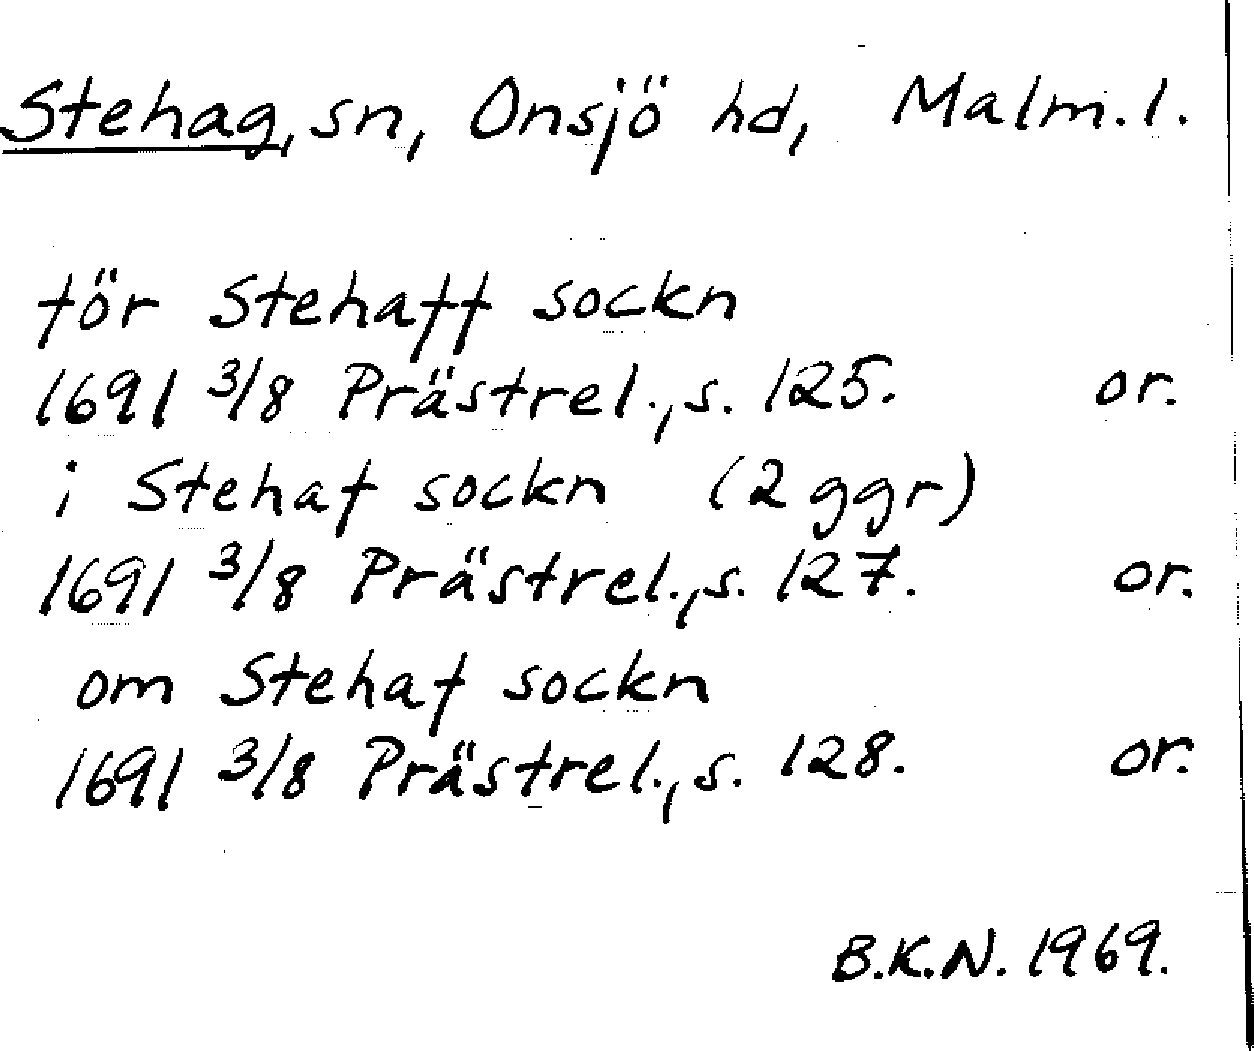 Stehag, sn, Onsjö hd, Malm.l.
för Stehaff sockn
1691 3/8 Prästrel., s. 125. or.
i Stehaf sockn (2 ggr)
1691 3/8 Prästrel., s. 127. or.
om Stehaf sockn
1691 3/8 Prästrel., s. 128. or.
B.K.N. 1969.